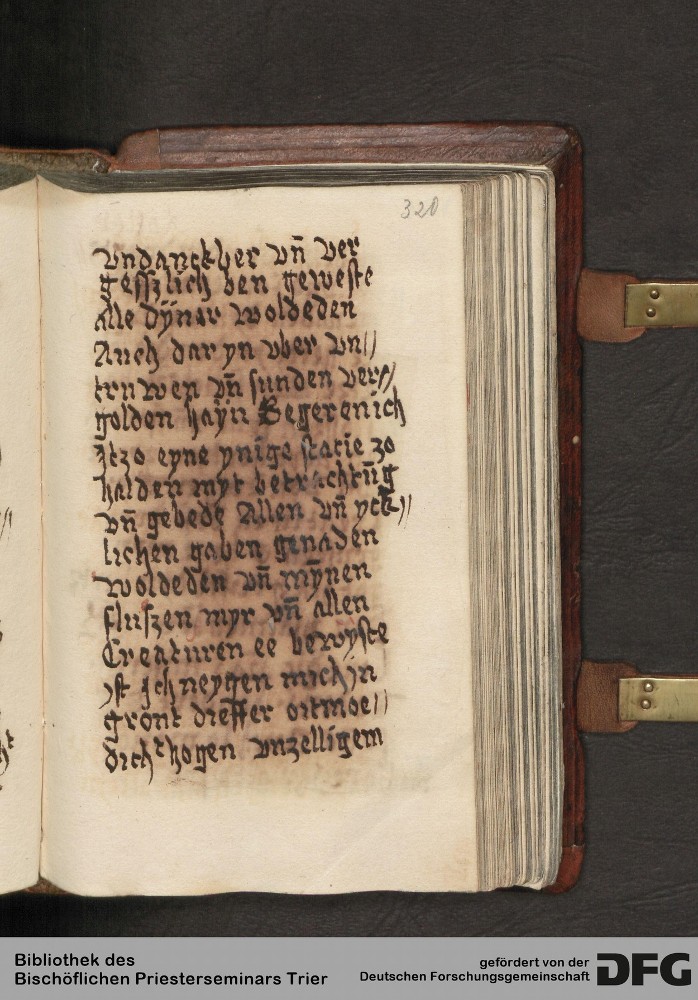 320
vndanckber vn̄ ver
gesszlich ben geweste
Alle dÿnar woldeden
Auch dar yn vber vn//
truwen vn̄ sunden ver//
golden hayn Begeren ich
Jtzo eyne ynige statie zo
halden myt betrachtūg
vn̄ gebede Allen vn̄ yck//
lichen gaben genaden
woldeden vn̄ mȳnen
flußen myr vn̄ allen
Creaturen ee bewyste
yst Jch neygen mich in
gront dieffer oitmoe//
dicht hogen vnzelligem
Bibliothek des
Bischöflichen Priesterseminars Trier
gefördert von der
Deutschen Forschungsgemeinschaft
DFG